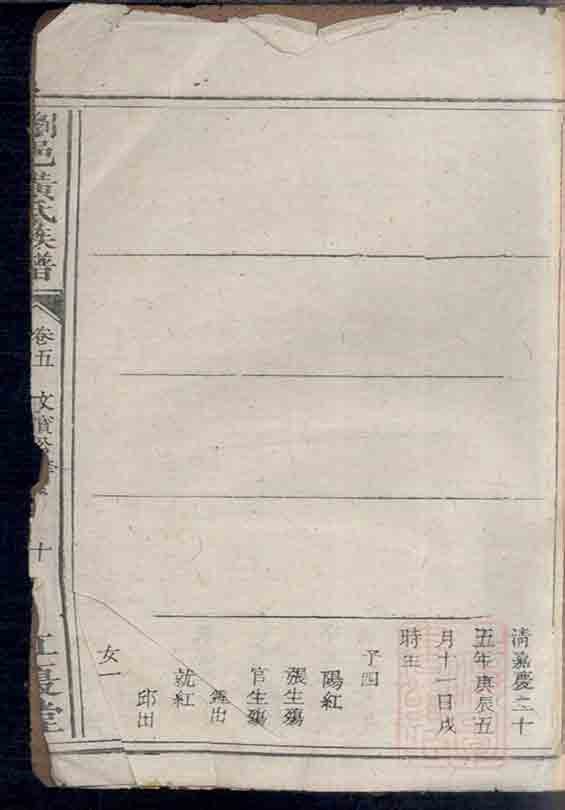 清嘉慶二十
五年庚辰五
月十一日戌
時生
子四
陽紅
張生殤
官生殤
就紅
邱出
女一
瀏邑黃氏族譜
卷五
文寶公
十
江夏堂